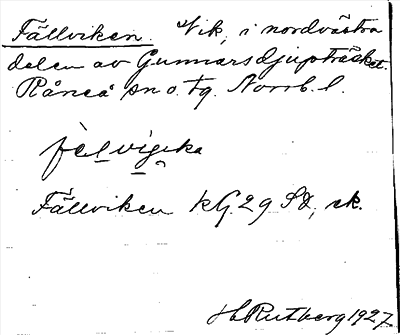 Fällviken. Vik, i nordvästra
delen av Gunnarsdjupträsket.
Råneå sn o. tg. Norrb. l.
Fällviken kG. 29 SD, ek.
H. Rutberg 1927